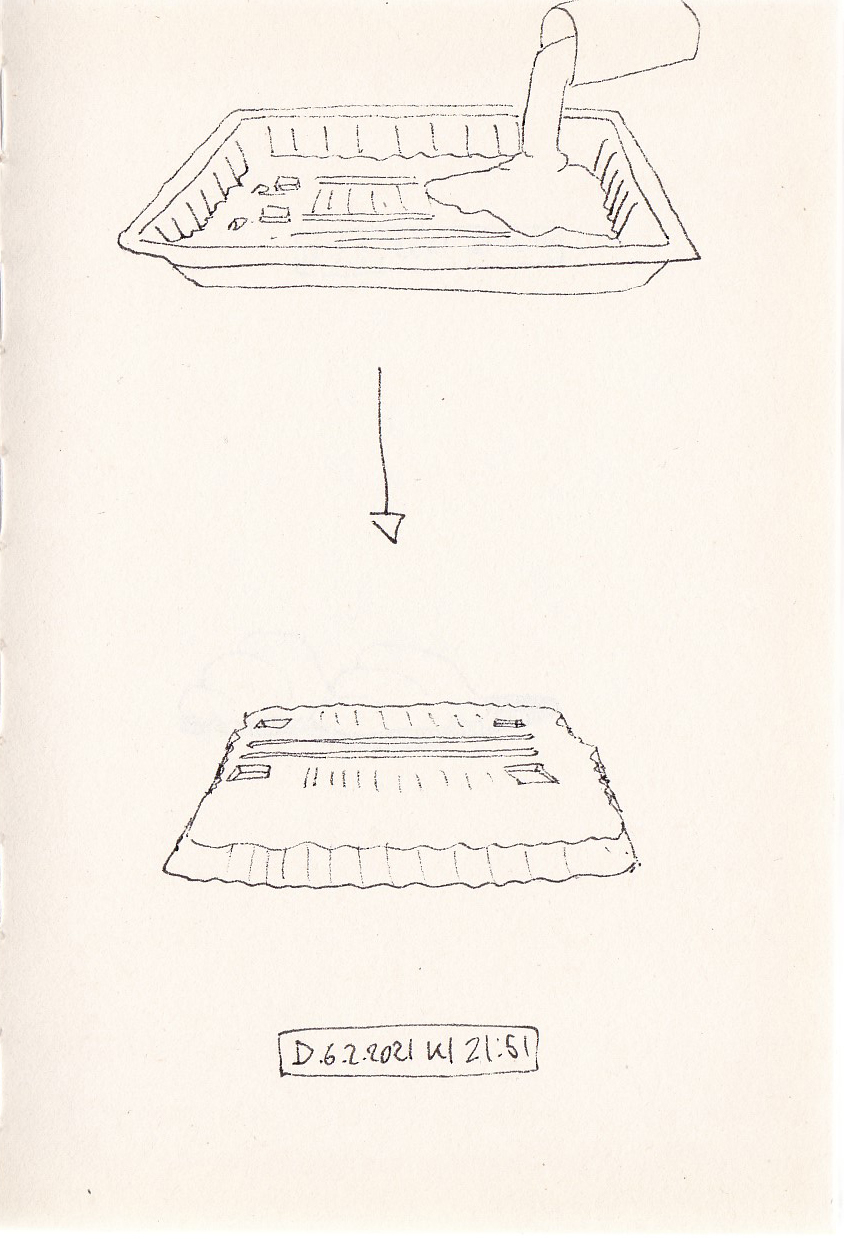 D.6.2.2021 kl 21:51